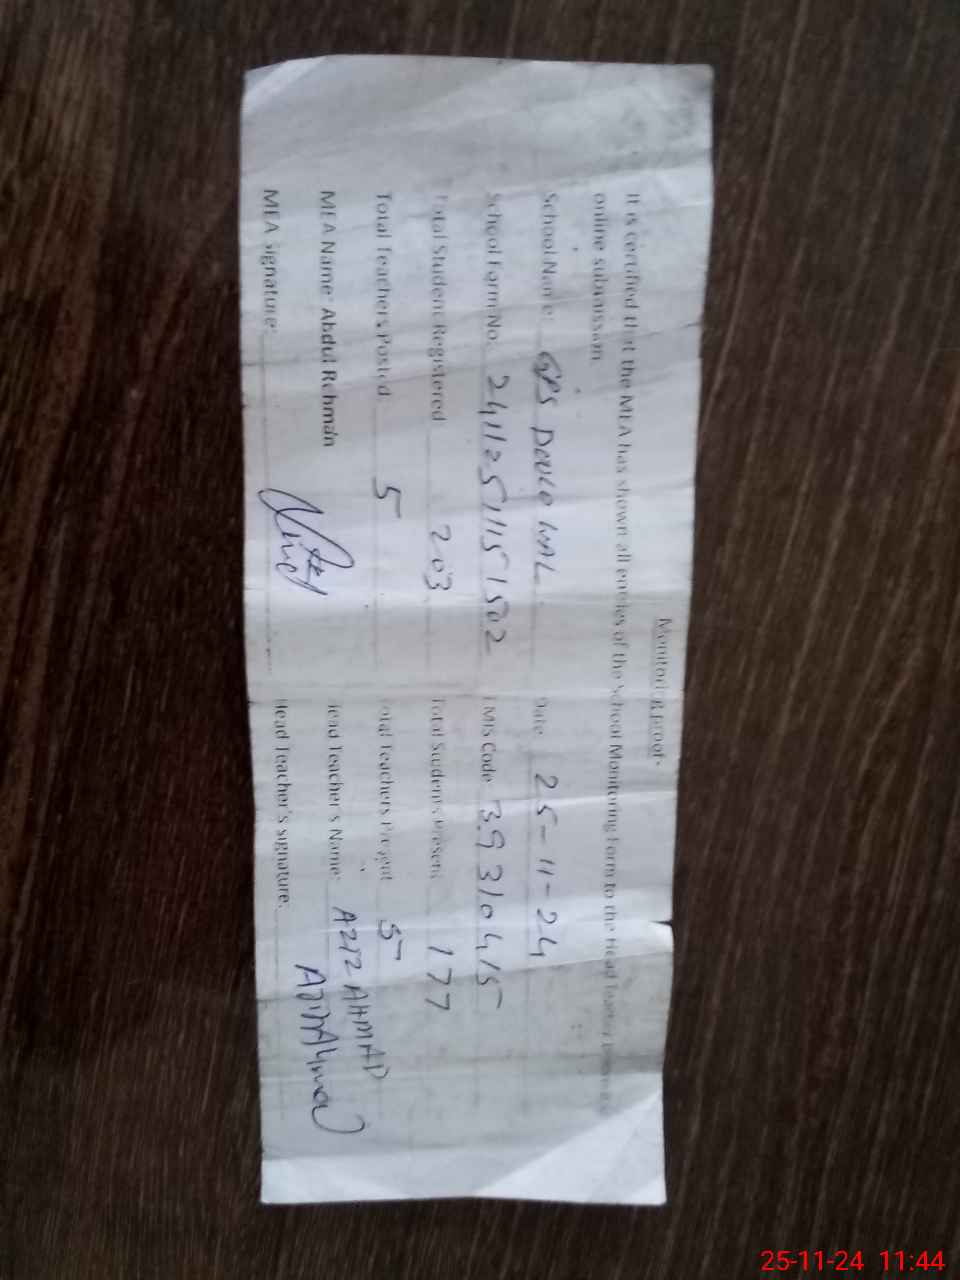 Monitoring proof-
It is certified that the MEA has shown all entries of the School Monitoring Form to the Head Teacher
online submission
School Name: GPS Date 25-11-24
School Form No. EMIS Code 39310415
Total Student Registered 203 Total Students Present 177
Total Teachers Posted 5 Total Teachers Present 5
MEA Name: Abdul Rehman Head Teacher's Name: AZIZ AHMAD
MEA signature: Head Teacher's signature:
25-11-24 11:44